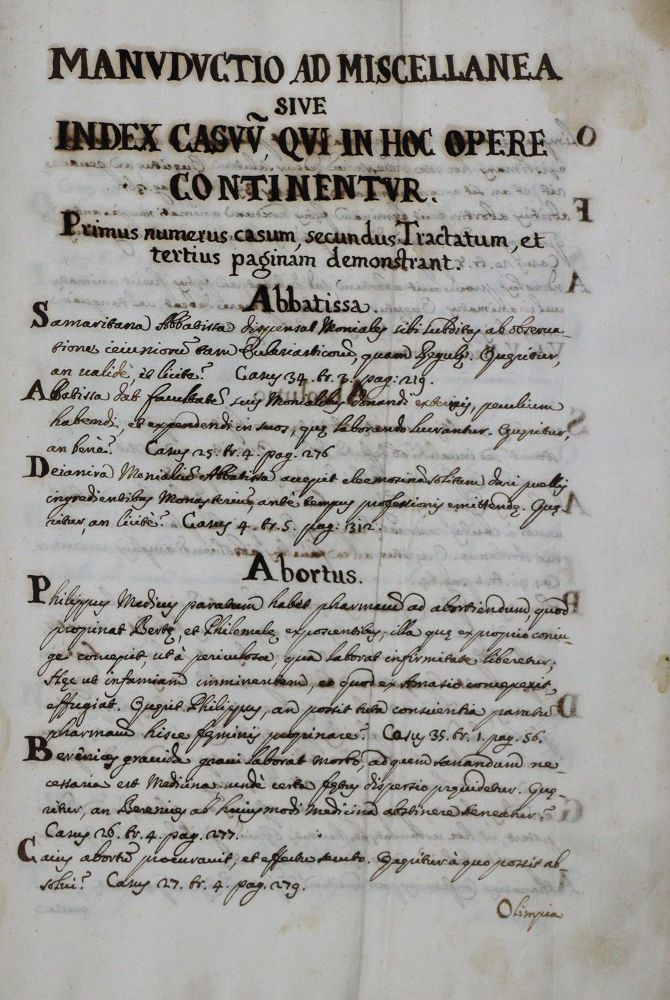 MANVDVCTIO AD MISCELLANEA
SIVE
INDEX CASVŨ, QVI IN HOC OPERE
CONTINENTVR.
Primus numerus casum, secundus Tractatum, et
tertius paginam demonstrant.
Abbatissa.
Samaritana Abbatissa dispensat Moniales sibi subditas ab observa-
tione ieiuniorũ tam Ecclesiasticorũ, quam Regulę. Quęritur,
an validè, et licitè? Casus 34. tr. 3. pag: 219.
Abbatissa dat facultatẽ suis Monialibus donandi externis, peculium
habendi, et expendendi in suos, quę laborando lucrantur. Quęritur,
an benè? Casus 25. tr. 4. pag. 276
Deianira Monialiũ Abbatissa accepit eleemosinã solitam dari puellis
ingredientibus Monasteriũ, antè tempus professionis emittendę. Quę-
ritur, an licitè? Casus 4. tr. 5. pag: 312.
Abortus.
Philippus Medicus paratum habet pharmacũ ad abortiendum, quod
propinat Bertę, et Philomelę exposcentibus; illa quę ex proprio coniu-
ge concepit, ut à periculosa, qua laborat infirmitate liberetur;
Hęc ut infamiam imminentem, eo quod ex Amasio conceperit,
effugiat. Quęrit Philippus, an possit tuta conscientia paratũ
pharmacũ hisce fęminis propinare? Casus 35. tr. 1. pag. 56.
Berenices gravida gravi laborat morbo, ad quem sanandum ne-
cessaria est Medicina: undè certa fętus dispersio pręvidetur. Quę-
ritur, an Berenices ab huiusmodi medicina abstinere teneatur?
Casus 26. tr. 4. pag. 277.
Caius abortũ procuravit, et effectu secuto. Quęritur à quo possit ab-
solvi? Casus 27. tr. 4. pag. 279.
Olimpia